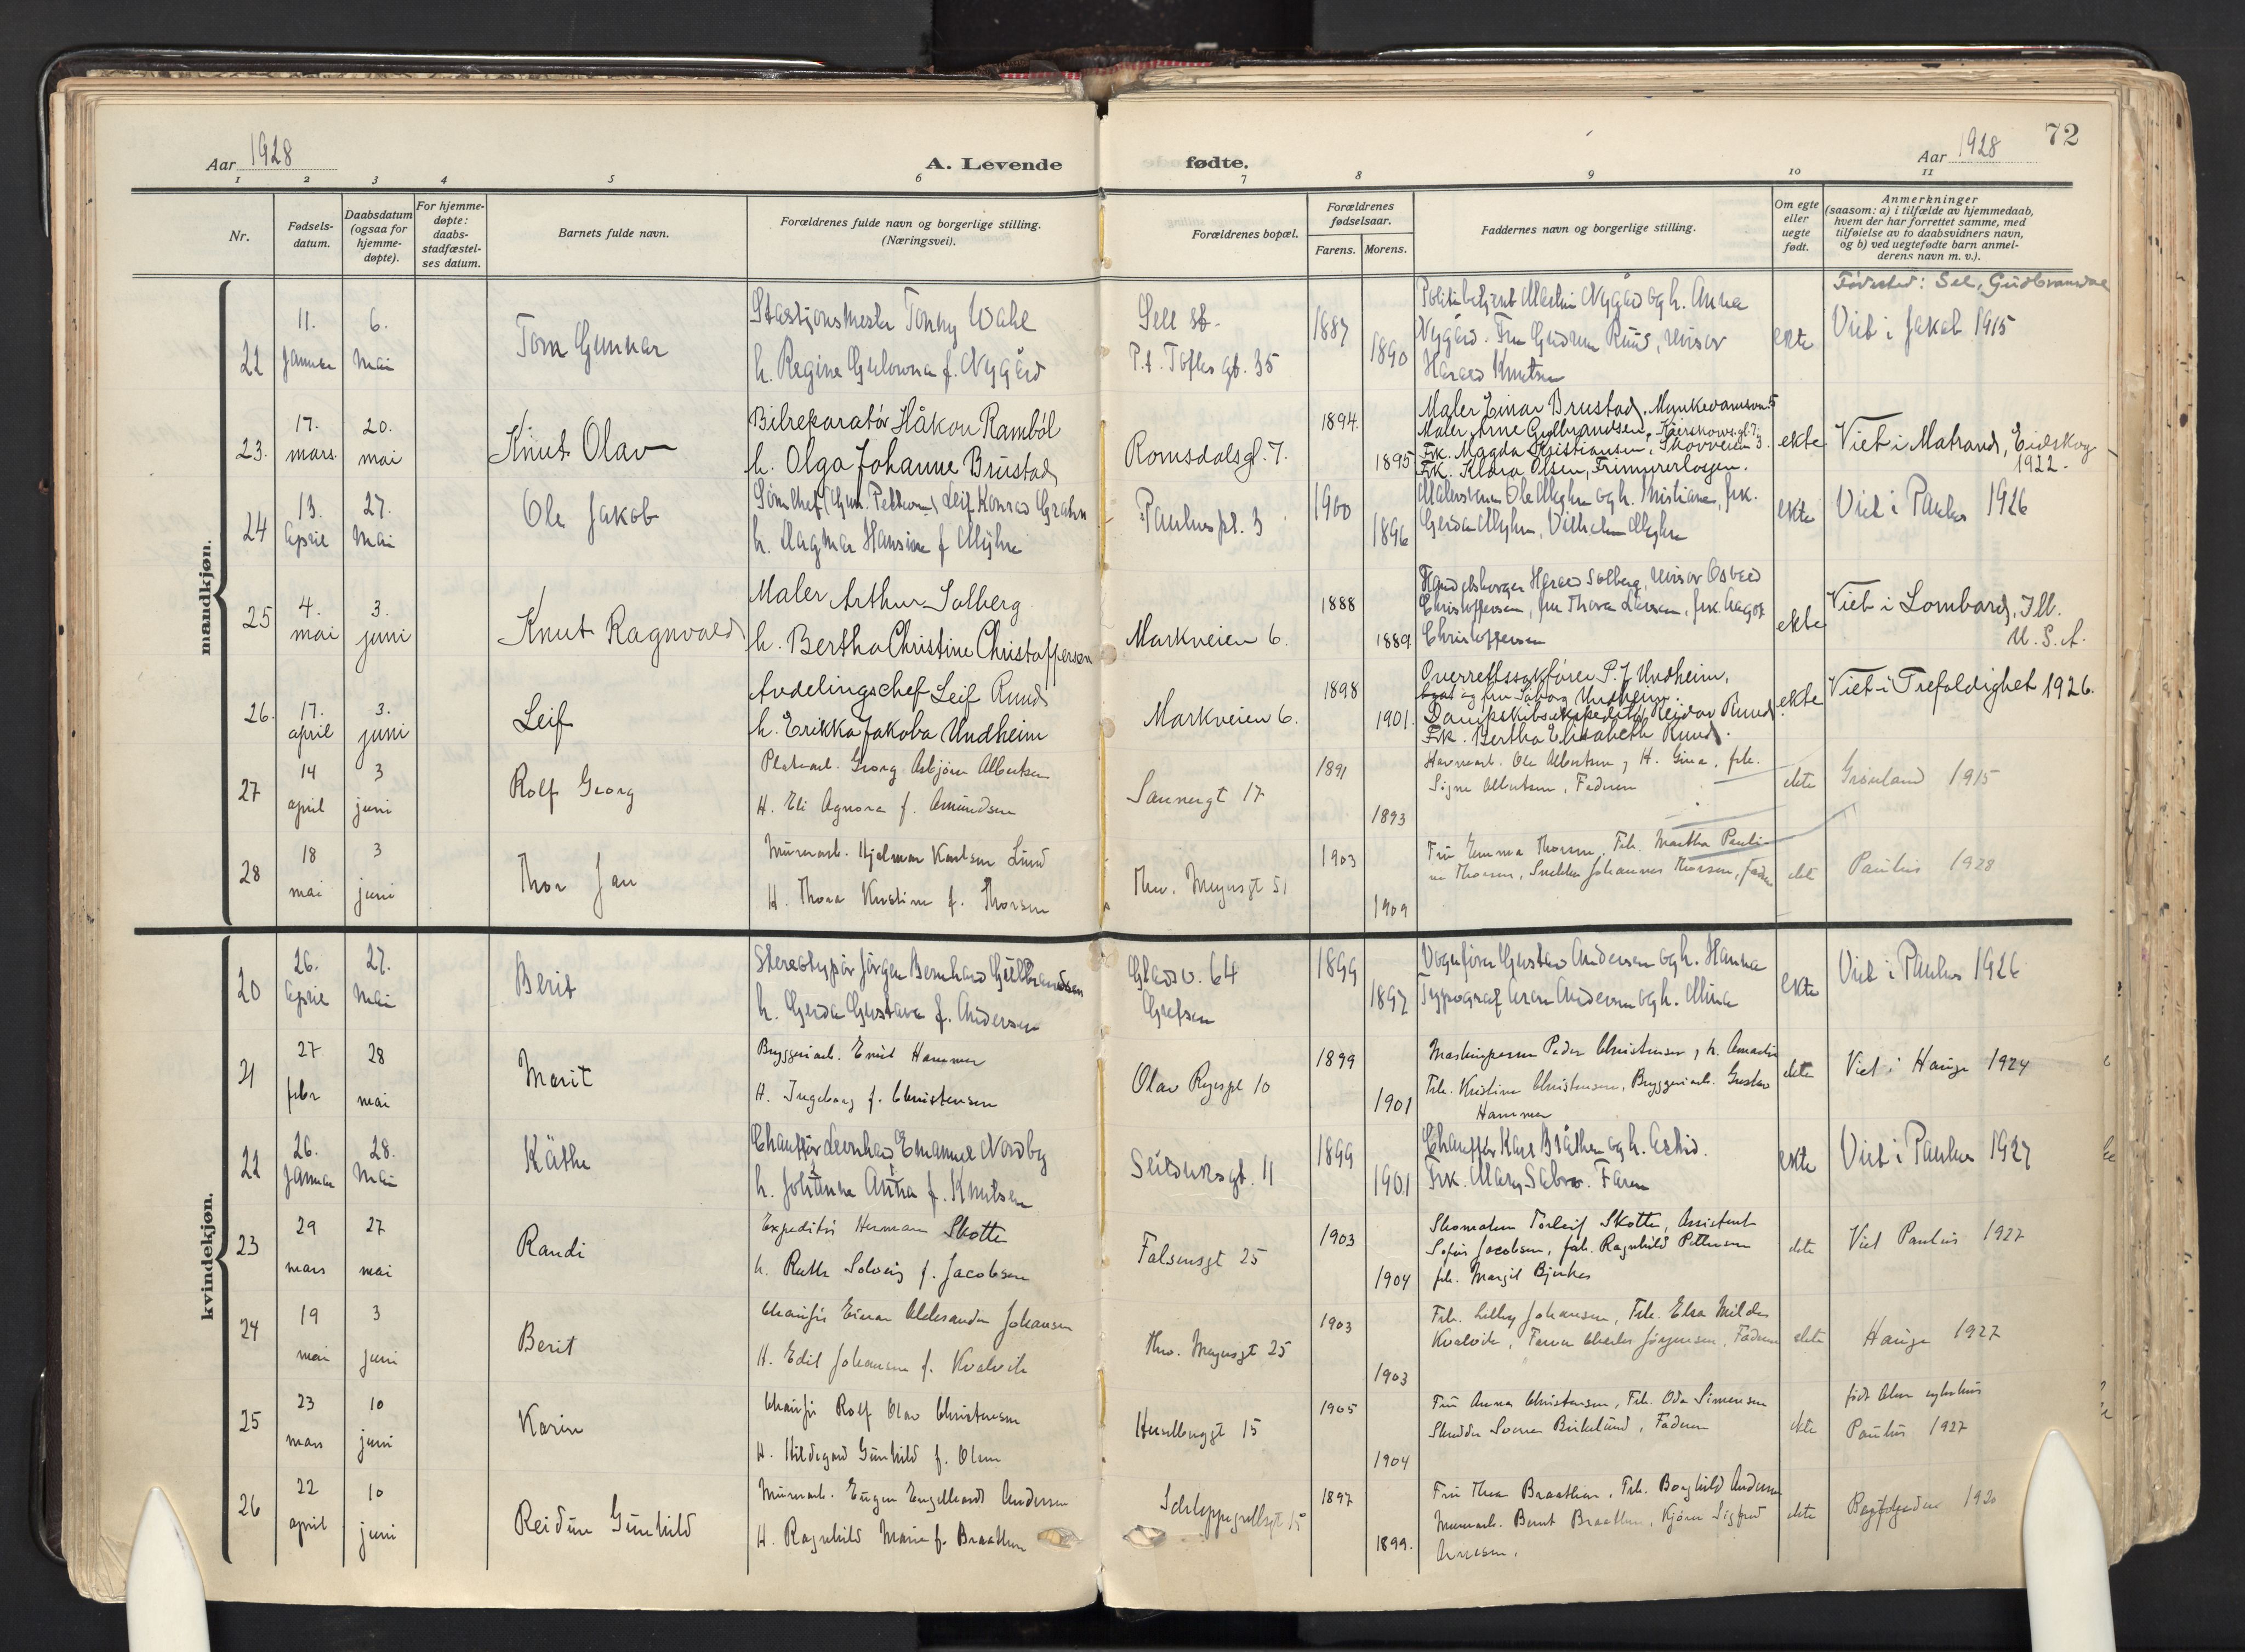 Aar 1928
A. Levende
fødte.
Aar 1928
72
1 2 3 4 5 6 7 8 9 10 11
Nr.
Fødsels-
datum.
Daabsdatum
(ogsaa for
hjemme-
døpte).
For hjemme-
døpte:
daabs-
stadfæstel-
ses datum.
Barnets fulde navn.
Forældrenes fulde navn og borgerlige stilling.
(Næringsvei).
Forældrenes bopæl.
Forældrenes
fødselsaar.
Farens. Morens.
Faddernes navn og borgerlige stilling.
Om egte
eller
uegte
født.
Anmerkninger
(saasom: a) i tilfælde av hjemmedaab,
hvem der har forrettet samme, med
tilføielse av to daabsvidners navn,
og b) ved uegtefødte barn anmel-
derens navn m. v.).
mandkjøn.
22
11.
Januar
6.
Mai
Tom Gunnar
Stasjonsmester Tonny Wahl
h. Regine f. Nygård
Sell st.
P.t. Toftes gt. 35
1887
1890
Politibetjent Martin Nygård og h. Anna
Nygård. Fru Gudrun Ruud, revisor
Harald Knutsen
ekte
Fødested: Sel, Gudbransdal
Viet i Jakob 1915
23.
17.
mars.
20.
mai
Knut Olav
Bilreparatør Håkon Ramböl
h. Olga Johanne Brustad
Romsdalsgt. 7.
1894.
1895
Maler Einar Brustad, Munkedamsv. 5
Maler Arne Gulbrandsen,
Frk. Magda Kristiansen, Skovveien 3.
Frk. Klara Olsen, Frimurerlosjen.
ekte
Viet i Matrand, Eidskog
1922.
24
13.
April
27.
Mai
Ole Jakob
Leif Konrad Grahn
h. Dagmar Hansine f. Myhre
Pauluspl. 3
1900
1896
Malersvenn Ole Myhre og h. Kristiane, frk.
Gerda Myhre, Vilhelm Myhre
ekte
Viet i Paulus 1926
25
4.
mai
3.
juni
Knut Ragnvald
Maler Arthur Solberg
h. Bertha Christine Christoffersen
Markveien 6.
1888
1889.
Handelsborger Harald Solberg, revisor Osvald
Christoffersen, fru Thora Larsen, frk. Aagot
Christoffersen
ekte
Viet i Lombard, Ill.
U. S. A.
26.
17.
april
3.
juni
Leif
Avdelingschef Leif Ruud
h. Erikka Jakoba Undheim
Markveien 6.
1898
1901.
Overrettssakfører P. J. Undheim,
og fru Undheim.
Dampskibsekspeditør Reidar Ruud
Frk. Bertha Elisabeth Ruud.
ekte
Viet i Trefoldighet 1926.
27
14
april
3
juni
Rolf Georg
Platearb. Georg Asbjørn Albertsen
H. Eli Agnora f. Amundsen
Sannergt 17
1891
1893
Havnearb. Ole Albertsen, H. Gina, frk.
Signe Albertsen, Faderen
ekte
Grønland 1915
28
18
mai
3
juni
Thor Jan
Murerarb. Hjalmar Karlsen Lund
H. Thora Kristine f. Thorsen
Thv. Meyersgt 51
1903
1909
Fru Emma Thorsen, Frk. Martha Pauli-
ne Thorsen, Snekker Johannes Thorsen, Faderen
ekte
Paulus 1928
kvindekjøn.
20
26.
April
27.
Mai
Berit
Stereotypør Jørgen Bernhard Gulbrandsen
h. Gerda Gustava f. Andersen
Gladv. 64
Grefsen
1899
1897
Vognfører Gustav Andersen og h. Hanna
Typograf Aron Andersen og h. Mina
ekte
Viet i Paulus 1926
21
27
febr
28
mai
Marit
Bryggeriarb. Emil Hammer
H. Ingeborg f. Christensen
Olav Ryespl 10
1899
1901
Peder Christensen, h. Amalie
Frk. Kristine Christensen, Bryggeriarb. Gustav
Hammer
ekte
Viet i Hauge 1924
22
26.
Januar
28.
Mai
Käthe
Chauffør Leonhard Emanuel Nordby
h. Johanne Anna f. Knutsen
Seilduksgt. 11
1899
1901
Chauffør Karl Bråthen og h. Astrid.
Frk. Mary Sæbø. Faren
ekte
Viet i Paulus 1927
23
29
mars
27
mai
Randi
Expeditør Herman Skotte
h. Ruth Solveig f. Jacobsen
Falsensgt 25
1903
1904
Skomaker Torleif Skotte, Assistent
Sofus Jacobsen, frk. Ragnhild Pettersen
frk. Margit Bjerkås
ekte
Viet Paulus 1927
24
19
mai
3
juni
Berit
Chaufør Einar Aleksander Johansen
H. Edit Johansen f. Kvalvik
Thv. Meyersgt 25
1903
1903
Frk. Lilly Johansen, Frk. Elsa Milda
Kvalvik, Charles Jørgensen, Faderen
ekte
Hauge 1927
25
23
mars
10
juni
Karin
Chaufør Rolf Olav Christensen
H. Hildegard Gunhild f. Olsen
Hesselbergsgt 15
1905
1904
Fru Anna Christensen, Frk. Oda Simensen
Skredder Sverre Birkelund, Faderen
ekte
født Aker sykehus
Paulus 1927
26
22
april
10
juni
Reidun Gunhild
Murerarb. Eugen Engelhardt Andersen
H. Ragnhild Marie f. Braathen
Schleppegrellsgt 15
1897
1899.
Fru Thea Braathen, Frk. Borghild Andersen
Murerarb. Bernt Braathen, Kjører Sigfred
Arnesen.
ekte
1920